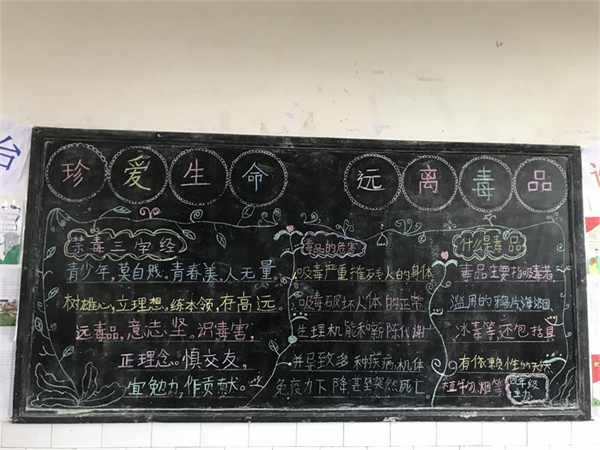 珍爱生命 远离毒品
禁毒三字经
青少年,莫自败。青春美,人无量。
树雄心,立理想。练本领,存高远。
远毒品,意志坚。识毒害,
正理念。慎交友,
宜勉力,作贡献。
毒品的危害
吸毒严重摧残人的身体
吸毒破坏人体的正常
生理机能和新陈代谢
并导致多种疾病,机体
免疫力下降,甚至突然死亡
什么是毒品
毒品主要指吸毒者
滥用的鸦片海洛因
冰毒等还包括具
有依赖性的天然
植物烟等
四年级
台